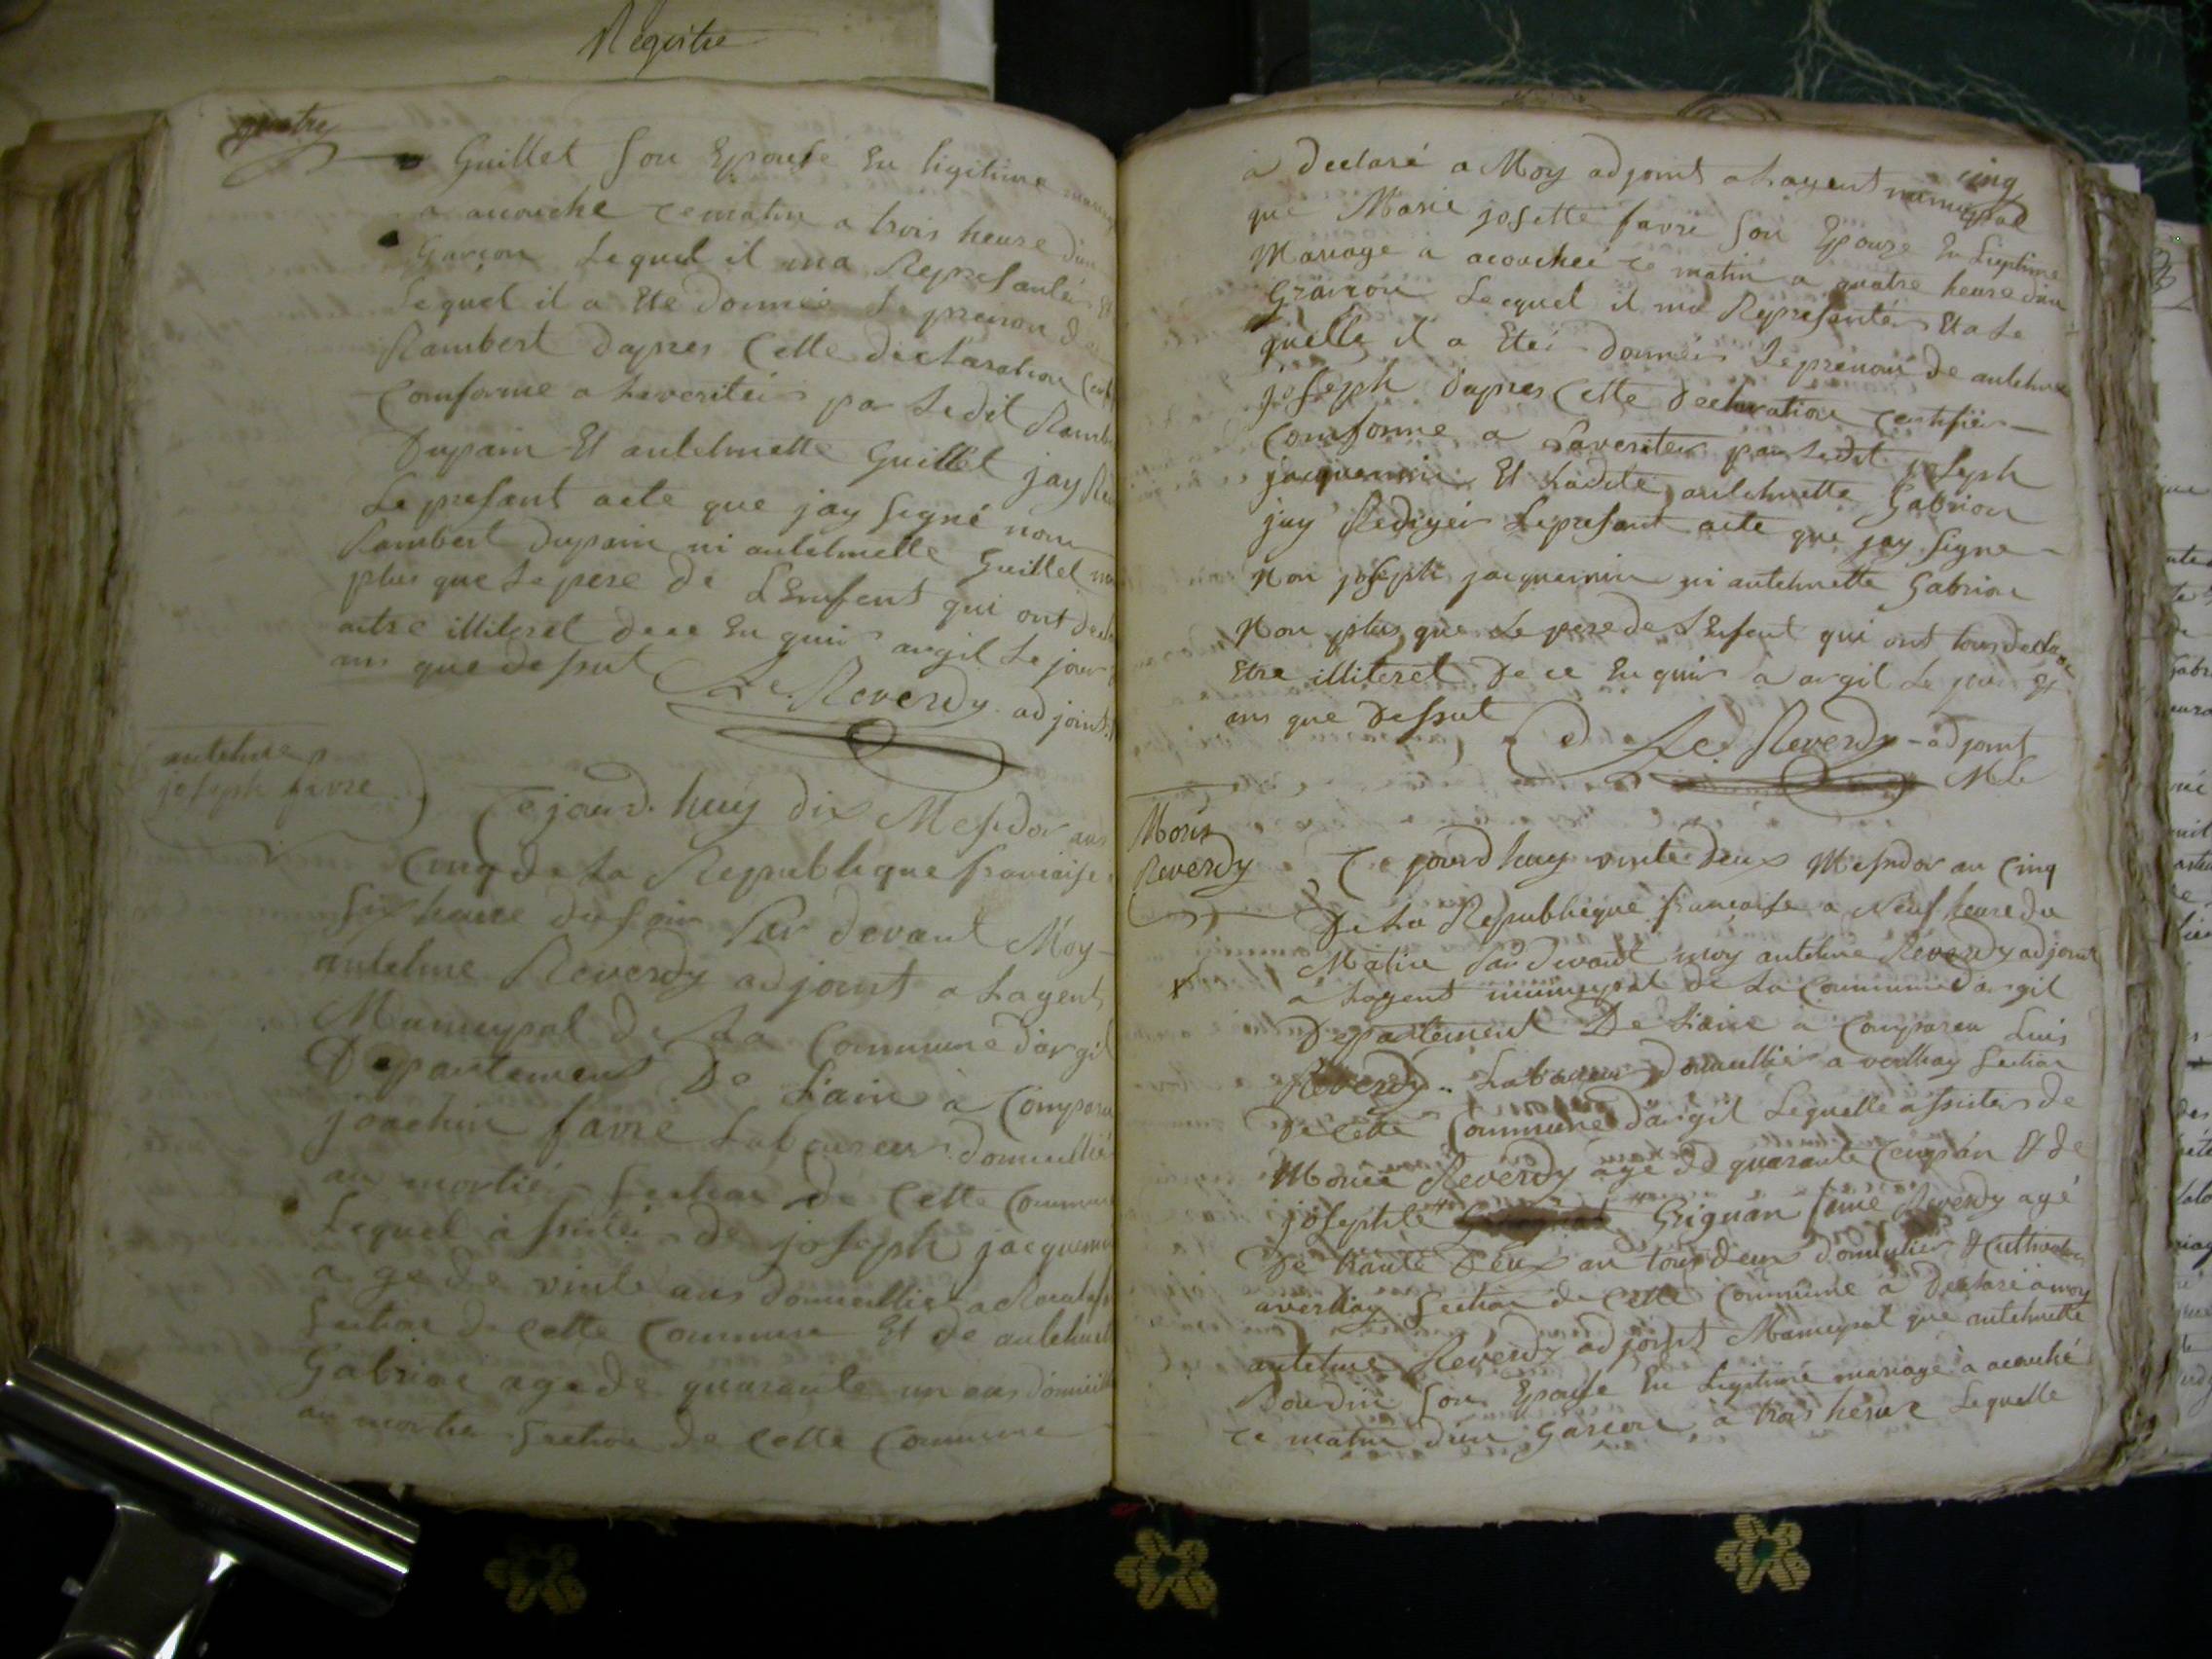 Registre
quatre
Guillet son Epouse En ligitime
a acouche ce matin a trois heure d'un
Garçon Lequel il ma Represanté Et
Lequel il a Ete donnéé Le prenon de
Rambert dapres Cette declaration
Comforme a Laveriteé par Ledit Ramb
Dupain Et antelmette Guillet jay
Le presant acte que jay signé non
Rambert dupain ni antelmette Guillet
plus que Le pere de LEnfent qui ont
aitre illiteret de ce En quir argil Le jour
ans que dessut
Le Reverdy adjoint
antelme
joseph favre
Cejourd. huy dix Messidor ans
Cinq de La Republique francaise
six heure du soir Par devant Moy
antelme Reverdy adjoint a Lagent
Municypal de La Commune d'argil
Departement De Lain a Comparu
joachin favre Laboureur domicillié
au mortié Section de Cette Commune
Lequel assisté de joseph jacquemin
age de vinte ans domicillié a
Section de Cette Commune Et de antelmett
Gabrion age de quarante un ans domicill
au mortie Section de Cette Commune
cinq
a declaré a Moy adjoint a Lagent municypal
que Marie josette favre son Epouze En Ligitime
Mariage a acouchéé ce matin a quatre heure d'un
Garcon Lecquel il ma Represanté Et a La
quelle il a Etéé donnéé Le prenom de antelme
joseph dapres Cette declaration certifiéé
Comforme a Laverité par Ledit joseph
jacquemin Et Ladite antelmette Gabrion
jay Redigéé Lepresant acte que jay signe
Non joseph jacquemin ni antelmette Gabrion
Non plus que Le pere de LEnfent qui ont tous declare
Etre illiteret De ce En quir a argil Le jour Et
ans que Dessut
Le Reverdy adjoint
Moris
Reverdy
Ce jourdhuy vinte deux Messidor an Cinq
De La Republique francaise a Neuf heure du
Matin Par devant moy antelme Reverdy adjoint
a Lagent municypal de La Commune d'argil
Departement De Laine a Comparu Luis
Reverdy Laboureur domicillié a verthay Section
De Cette Commune dargil Lequelle assisté de
Morice Reverdy age de quarante Cinq an Et de
josephte Grignan fame Reverdy agé
De trante Deux an tous deux domicilié Et Cultivateur
averthay Section de Cette Commune a Declaré a moy
antelme Reverdy adjoint Municypal que antelmette
Boudin son Epouse En Legitime mariage a acouché
ce matin d'un Garcon a trois heure Lequelle